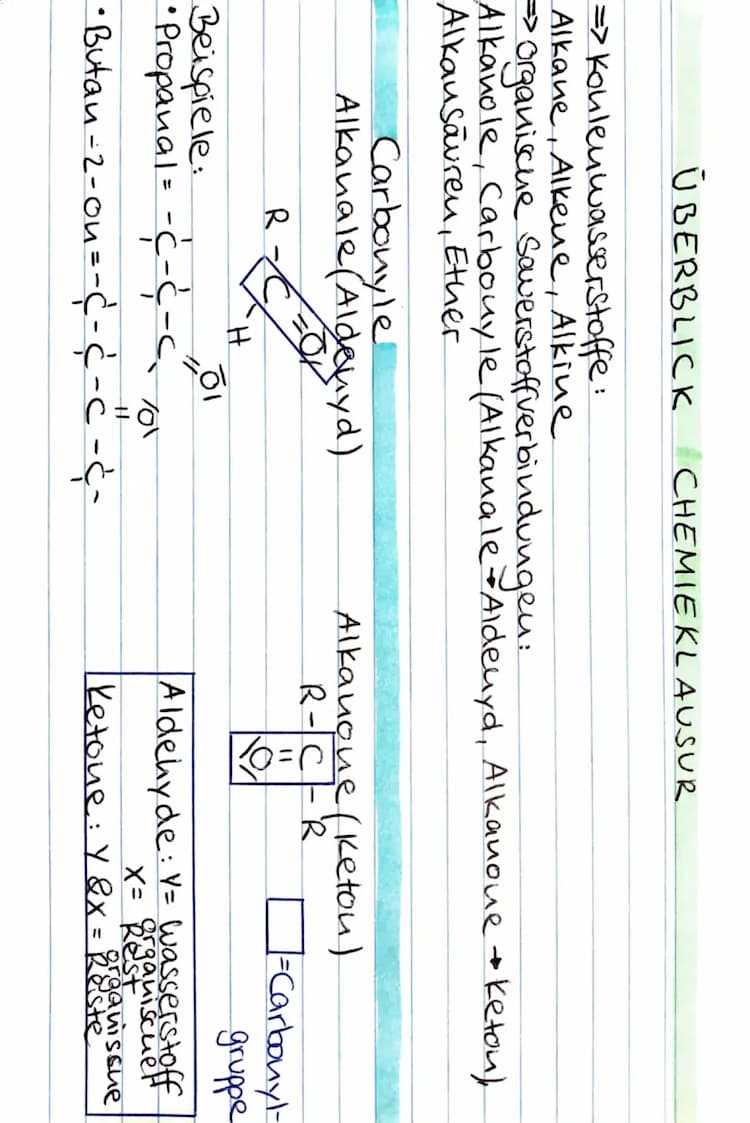 ÜBERBLICK CHEMIEKLAUSUR
=> Kohlenwasserstoffe:
Alkane, Alkene, Alkine
=> Organische Sauerstoffverbindungen:
Alkanole, Carbonyle (Alkanale → Aldehyd, Alkanone → Keton)
Alkansäuren, Ether
Carbonyle
Alkanale (Aldehyd)
Alkanone (Keton)
R - C = O
H
R - C - R
=
O
= Carbonyl-
gruppe
Beispiele:
• Propanal = - C - C - C = O
• Butan - 2 - on = - C - C - C - C -
=
O
Aldehyde: Y = Wasserstoff
X = organischer
Rest
Ketone: Y & X = organische
Reste